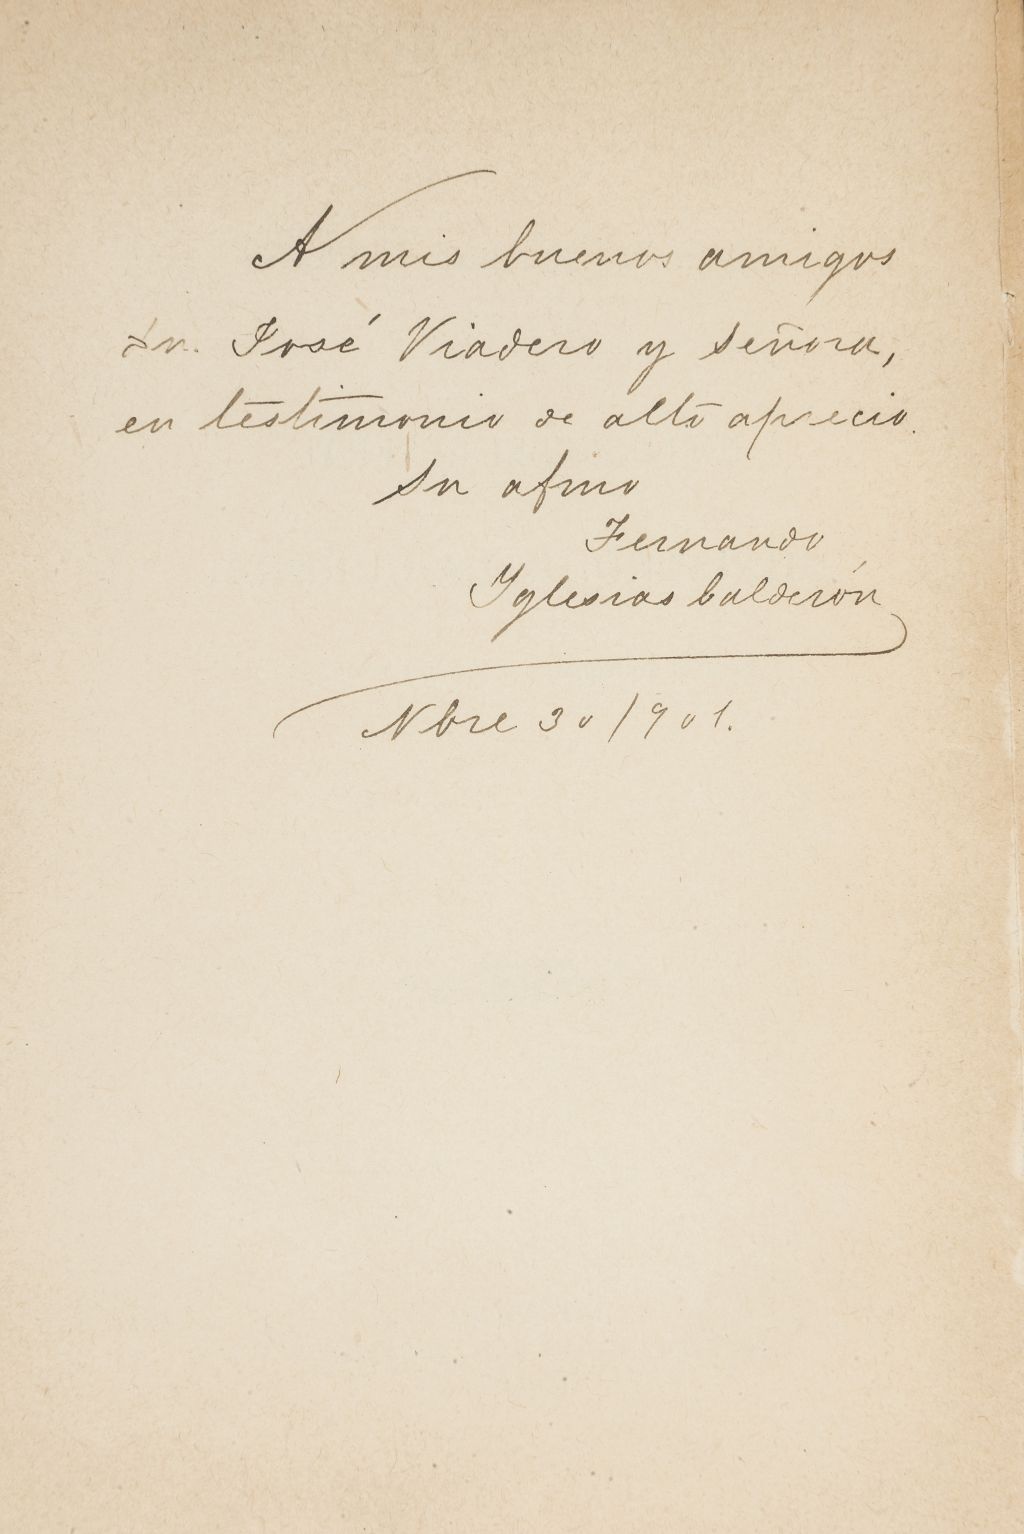 A mis buenos amigos
Sr. José Viadero y Señora,
en testimonio de alto aprecio.
Su afmo
Fernando
Yglesias Calderón
Nbre 30/901.